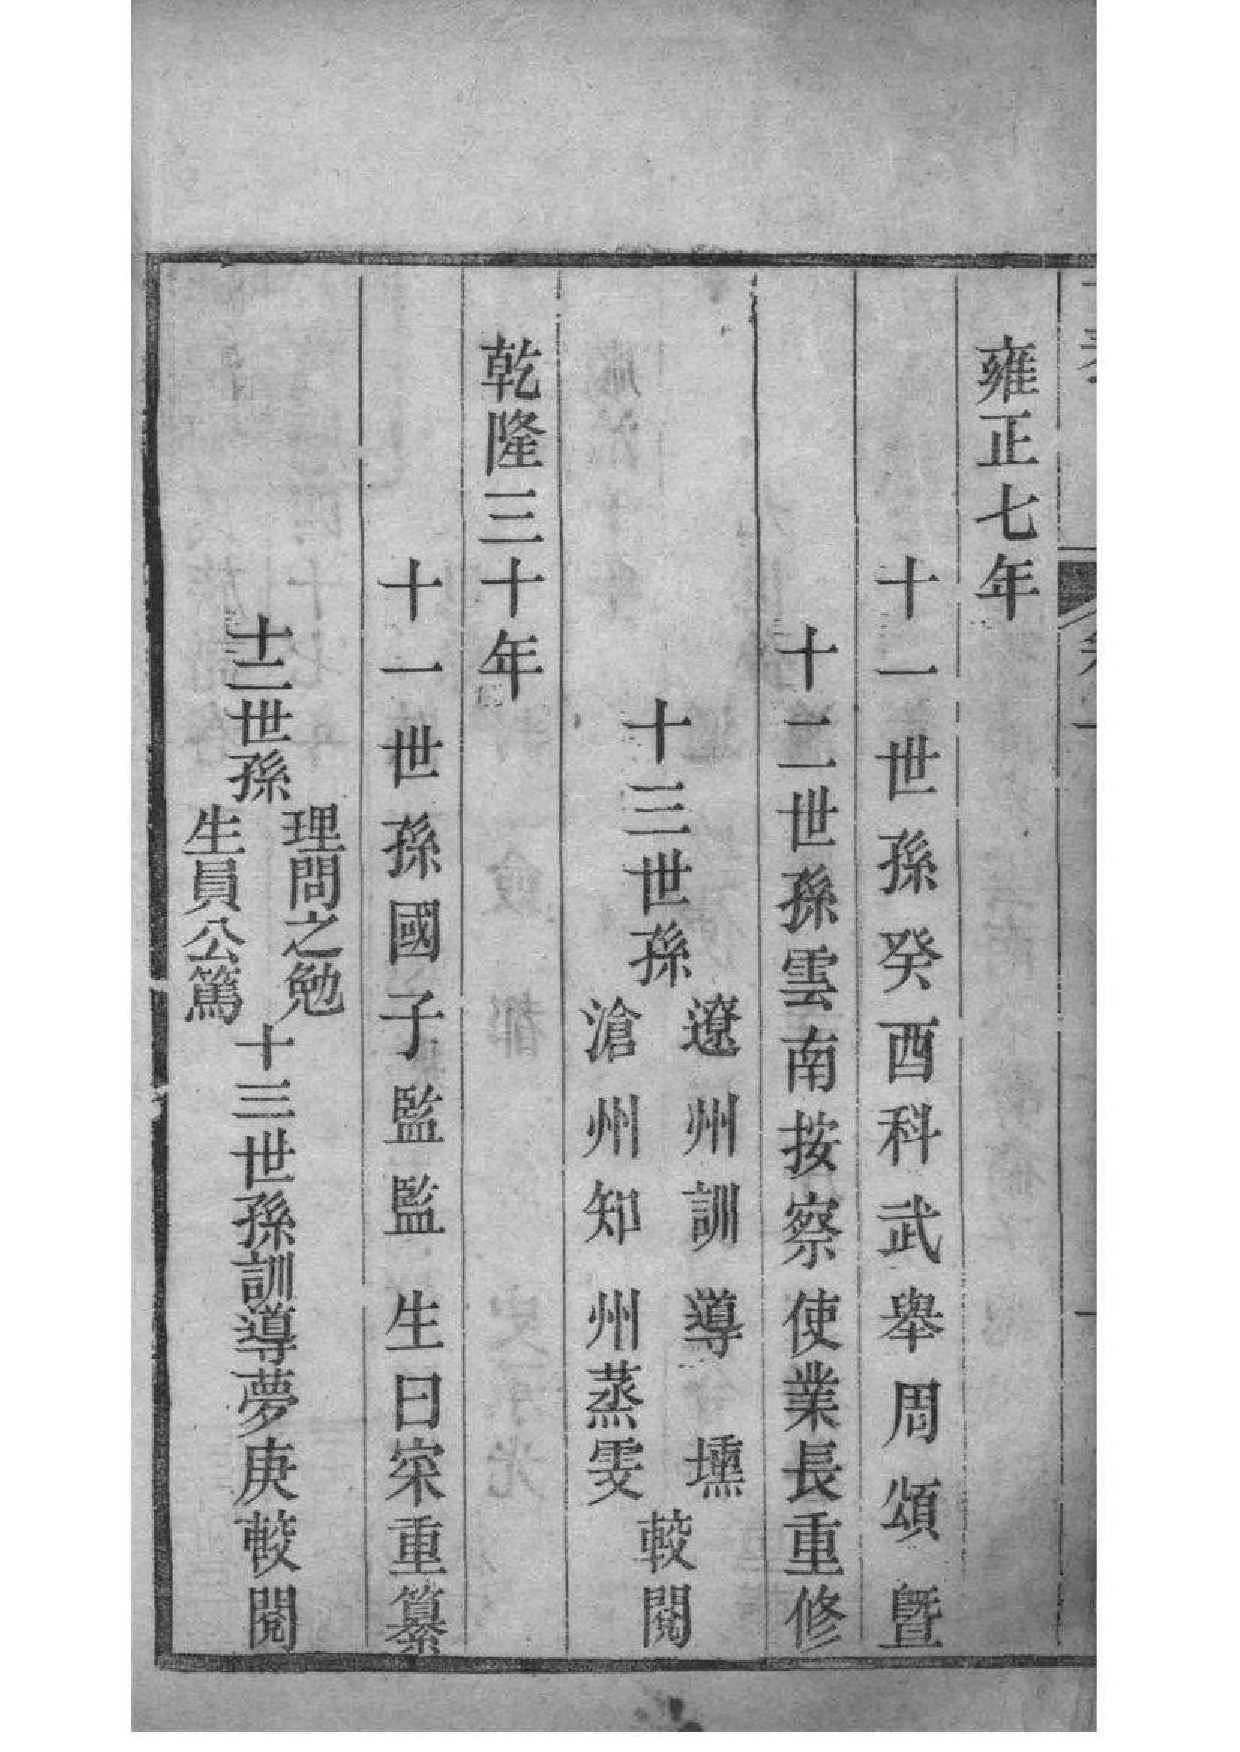 雍正七年
十一世孫癸酉科武舉周頌暨
十二世孫雲南按察使業長重修
十三世孫
遼州訓導壎
滄州知州蒸雯
較閱
乾隆三十年
十一世孫國子監監生曰寀重纂
十二世孫
理問之勉
生員公篤
十三世孫訓導夢庚較閱